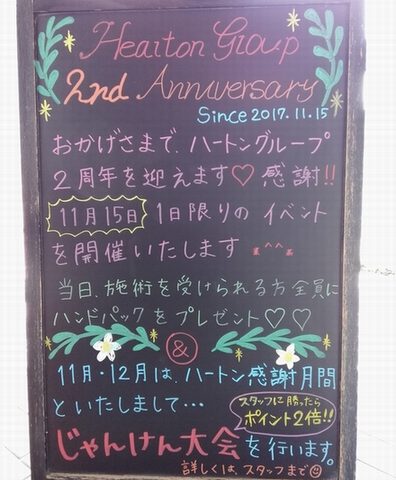 Heaiton Group
2nd Anniversary
Since 2017.11.15
おかげさまで、ハートングループ
2周年を迎えます♡感謝!!
11月15日 1日限りの イベント
を開催いたします
当日、施術を受けられる方全員に
ハンドパックをプレゼント♡♡
&
11月・12月は、ハートン感謝月間
といたしまして…
スタッフに勝ったら
ポイント2倍!!
じゃんけん大会を行います。
詳しくは、スタッフまで☺